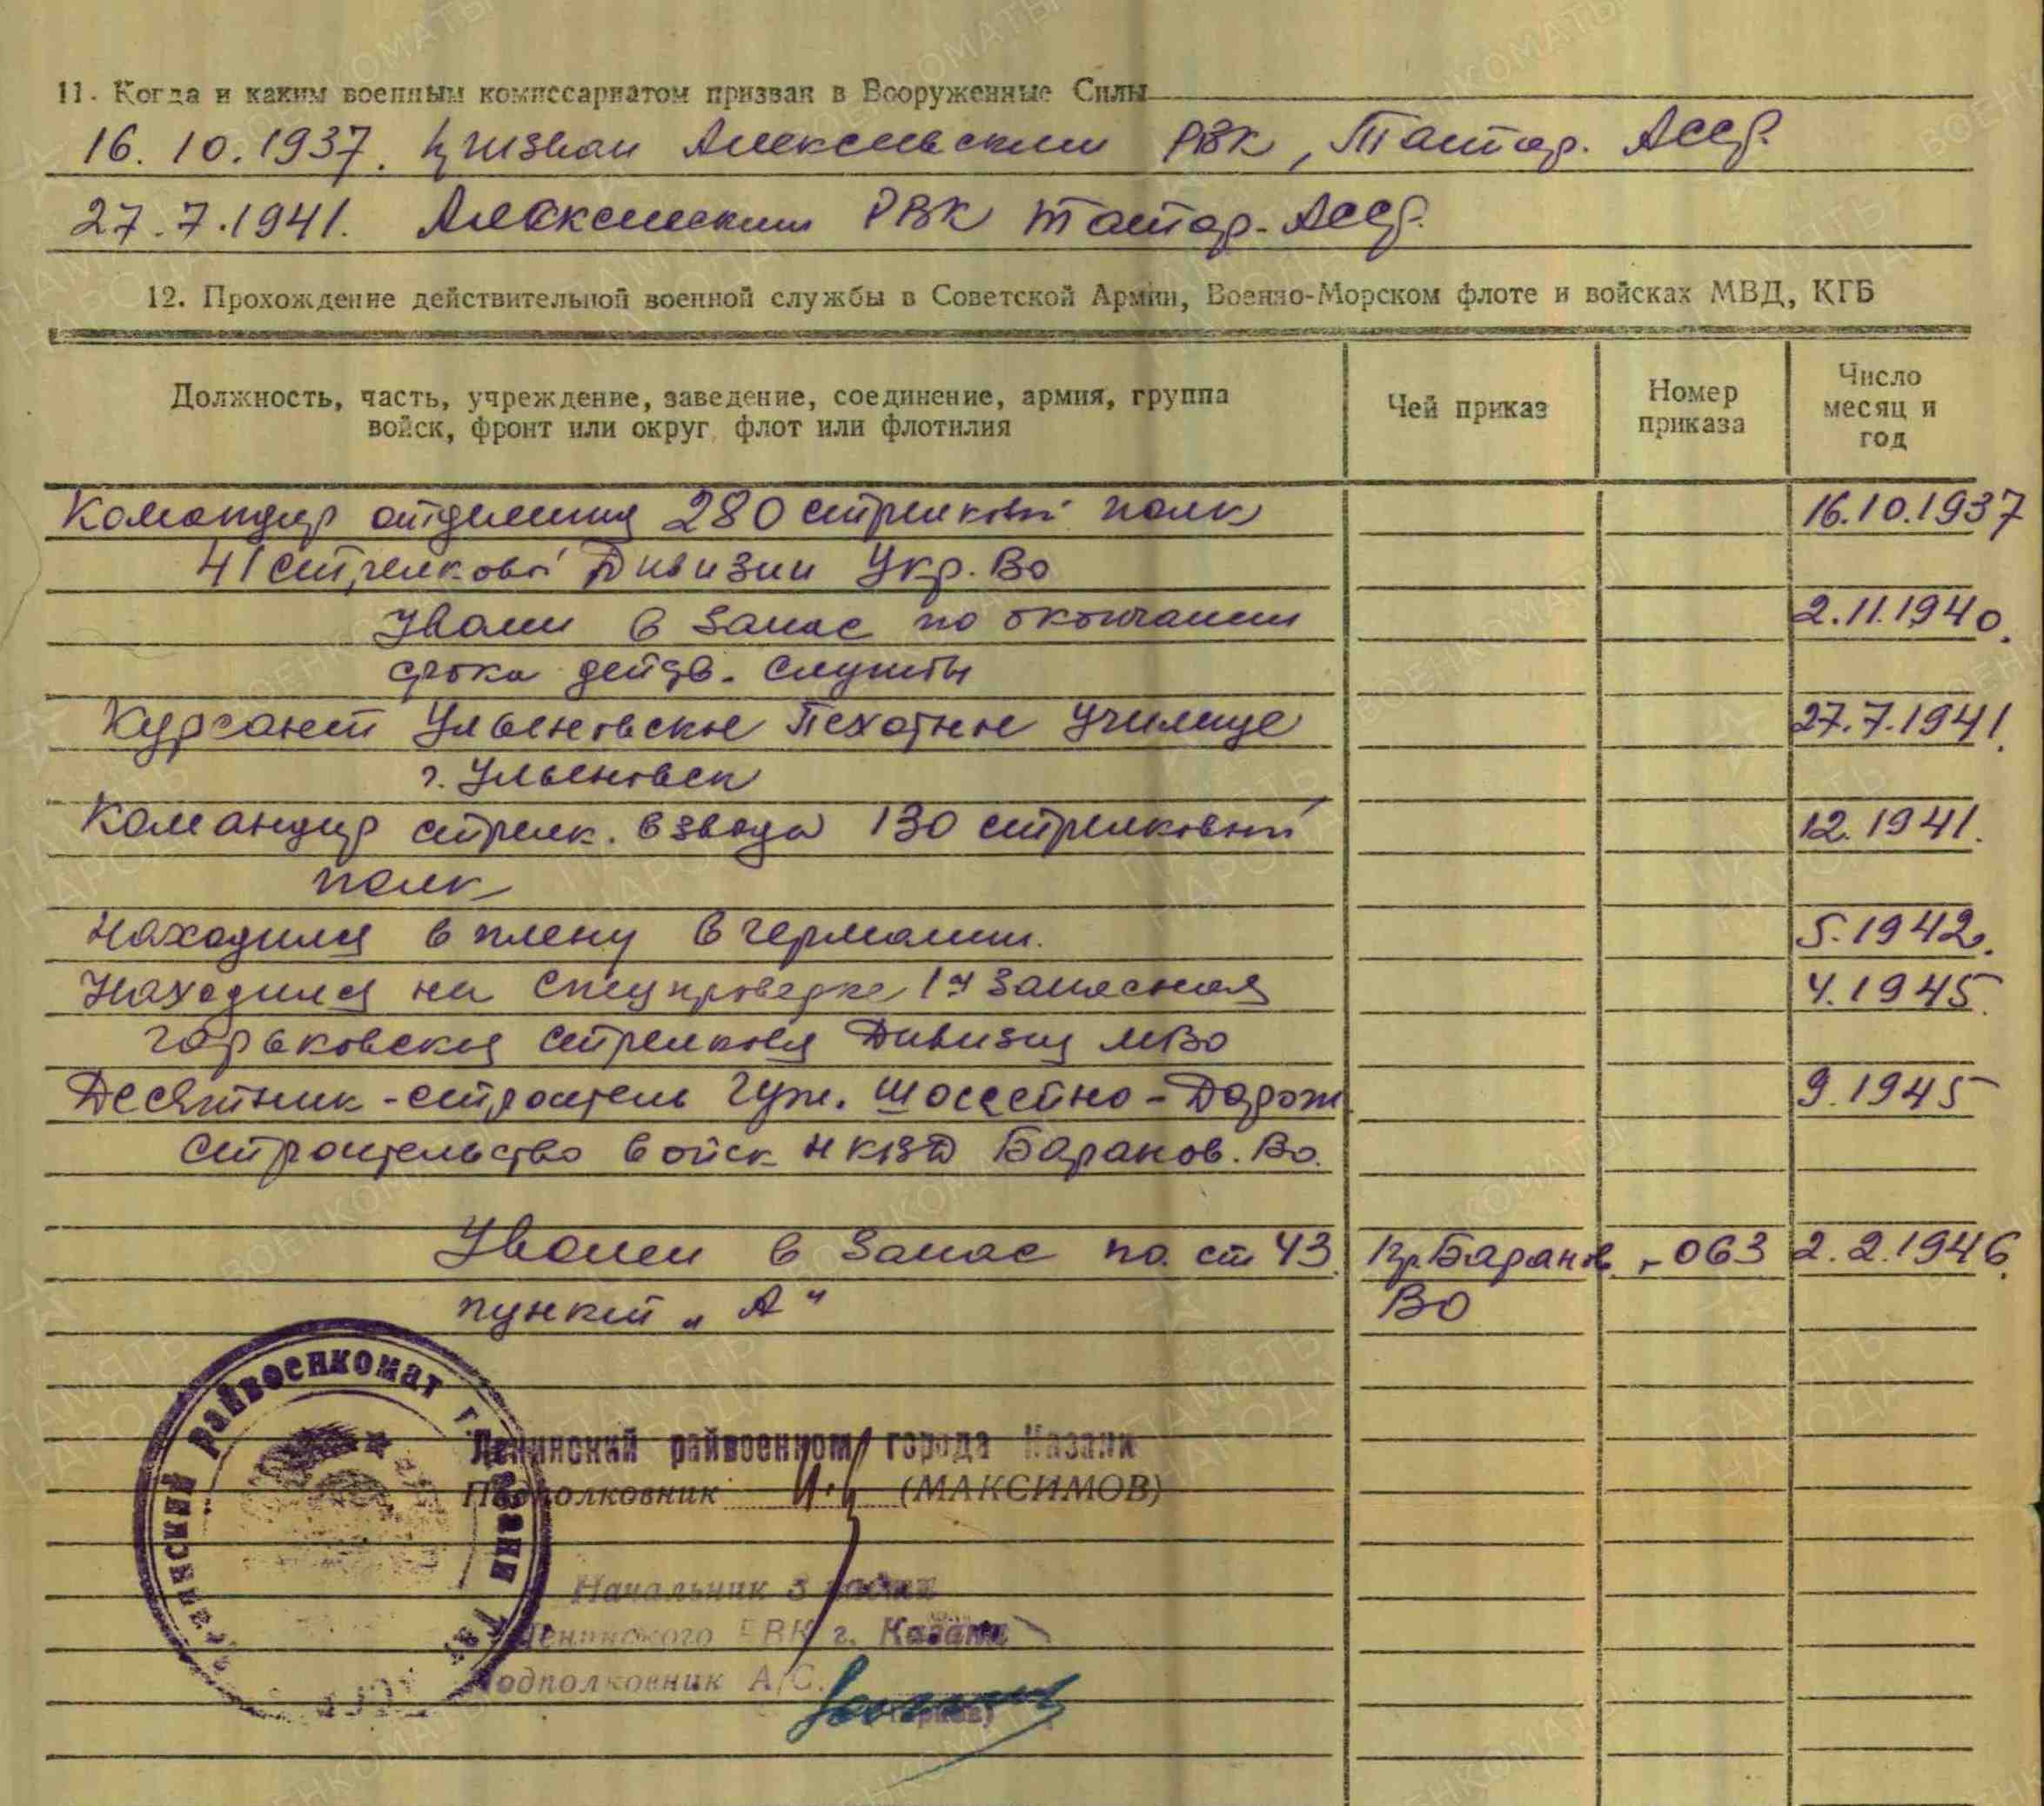 11. Когда и каким военным комиссариатом призван в Вооруженные Силы
16.10.1937. Призван Алексеевским РВК, Татар. АССР.
27.7.1941. Алексеевским РВК Татар. АССР.
12. Прохождение действительной военной службы в Советской Армии, Военно-Морском флоте и войсках МВД, КГБ
Должность, часть, учреждение, заведение, соединение, армия, группа
войск, фронт или округ, флот или флотилия
Чей приказ
Номер
приказа
Число
месяц и
год
Командир отделения 280 стрелковый полк 16.10.1937
41 стрелковой Дивизии Укр. ВО
Уволен в запас по окончании 2.11.1940.
срока действ. службы
Курсант Ульяновское Пехотное Училище 27.7.1941.
г. Ульяновск
Командир стрелк. взвода 130 стрелковый 12.1941.
полк
Находился в плену в Германии. 5.1942.
Находился на спецпроверке 1я Запасная 4.1945.
Горьковская стрелковая Дивизия МВО
Десятник-строитель Гуж. Шоссейно-Дорож 9.1945
строительство войск НКВД Баранов. ВО.
Уволен в запас по ст 43 Пр. Баранов. -063 2.2.1946.
пункт „А“ ВО
райвоенкомат г. Казани
Ленинский райвоенком города Казани
Подполковник (МАКСИМОВ)
Начальник 3 части
Ленинского РВК г. Казани
Подполковник А/С.